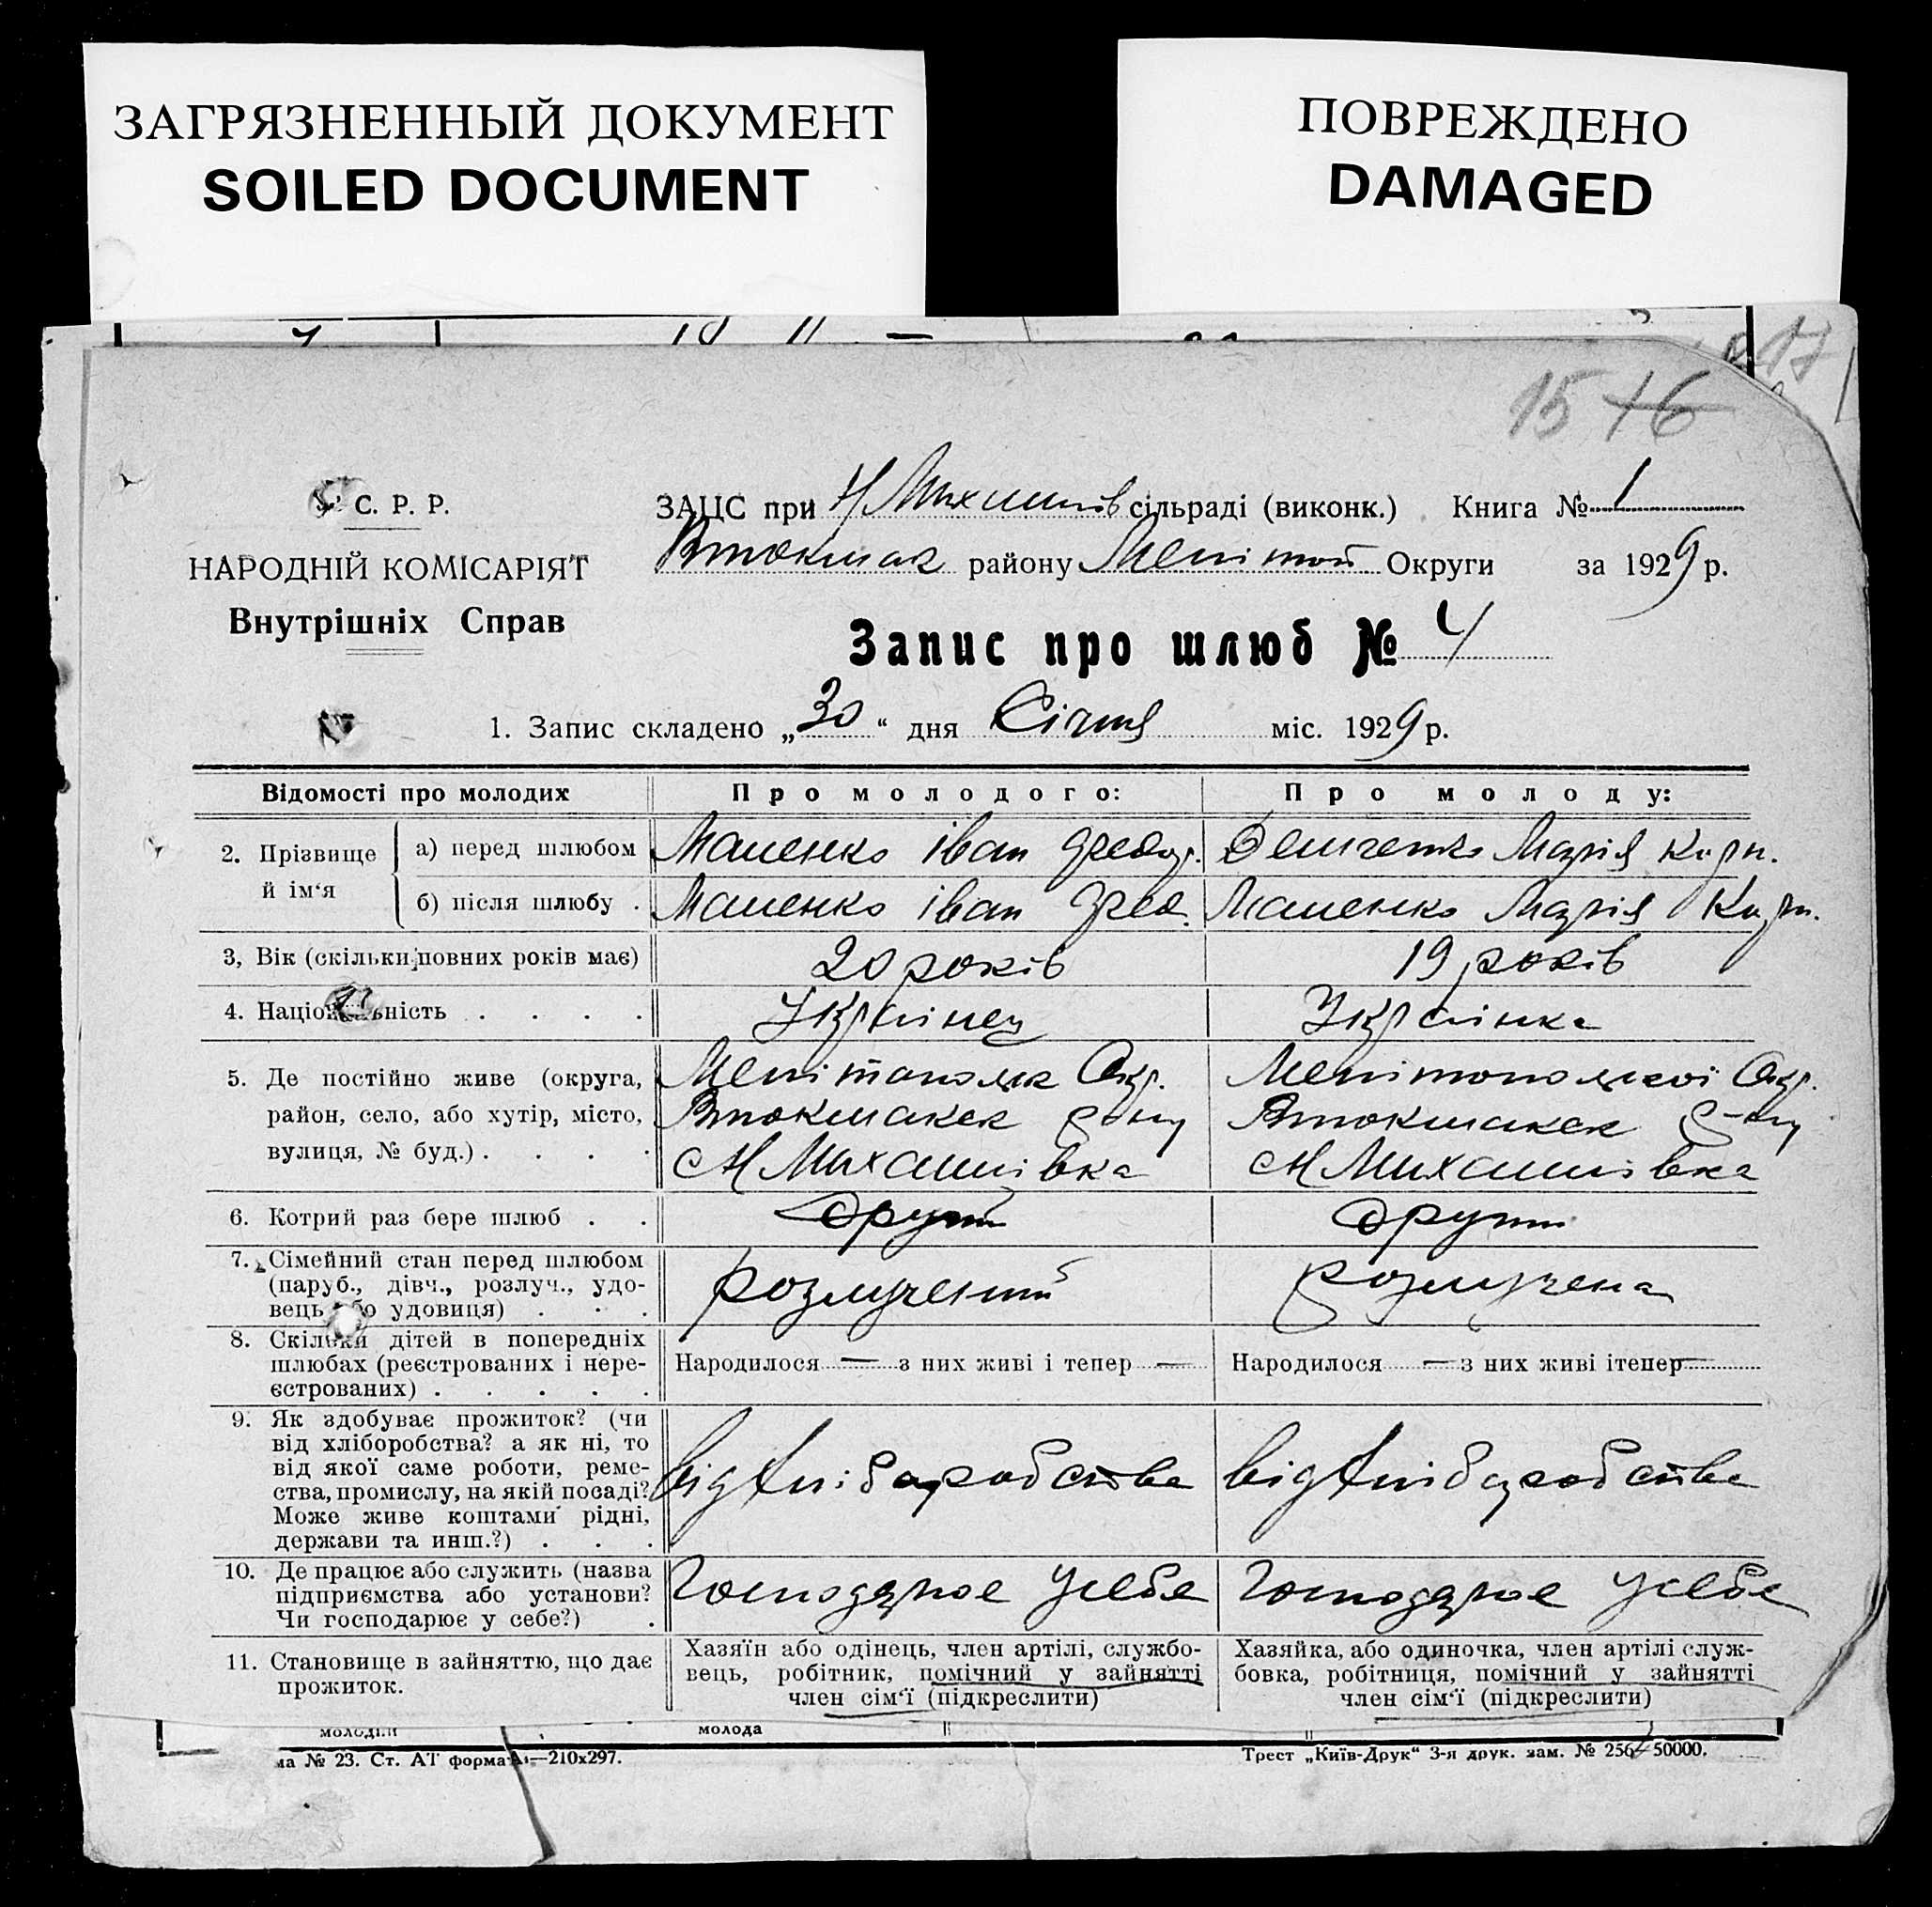 ЗАГРЯЗНЕННЫЙ ДОКУМЕНТ
SOILED DOCUMENT
ПОВРЕЖДЕНО
DAMAGED
15 16
С. Р. Р.
НАРОДНІЙ КОМІСАРІЯТ
Внутрішніх Справ
ЗАЦС при Н Михайлів сільраді (виконк.) Книга № 1
Втокмак району Мелітоп Округи за 1929 р.
Запис про шлюб № 4
1. Запис складено „30“ дня Січня міс. 1929 р.
Відомості про молодих
Про молодого:
Про молоду:
2. Прізвище й ім‘я
а) перед шлюбом
Маленко Іван Федор.
Марія Карп.
б) після шлюбу .
Маленко Іван Фед.
Маленко Марія Карп.
3, Вік (скільки повних років має)
20 років
19 років
4. Націон ьність . . . .
Українец
Українка
5. Де постійно живе (округа,
район, село, або хутір, місто,
вулиця, № буд.) . . . .
Окр.
Втокмакск р-ну
с Н Михайлівка
Мелітопольскої Окр.
Втокмакск р-ну
с Н Михайлівка
6. Котрий раз бере шлюб . .
другий
другий
7. Сімейний стан перед шлюбом
(паруб., дівч., розлуч., удо-
вець або удовиця) . . .
розлучений
розлучена
8. Скільки дітей в попередніх
шлюбах (реєстрованих і нере-
єстрованих) . . . . .
Народилося — з них живі і тепер —
Народилося — з них живі ітепер —
9. Як здобуває прожиток? (чи
від хліборобства? а як ні, то
від якої саме роботи, реме-
ства, промислу, на якій посаді?
Може живе коштами рідні,
держави та инш.?) . . .
від хліборобства
від хліборобства
10. Де працює або служить (назва
підприємства або установи?
Чи господарює у себе?) .
Господарює у себе
Господарює у себе
11. Становище в зайняттю, що дає
прожиток.
Хазяїн або одінець, член артілі, службо-
вець, робітник, помічний у зайнятті
член сім‘ї (підкреслити)
Хазяйка, або одиночка, член артілі служ-
бовка, робітниця, помічний у зайнятті
член сім‘ї (підкреслити)
молода
№ 23. Ст. АТ форма —210x297.
Трест „Київ-Друк“ 3-я друк. зам. № 256 50000.